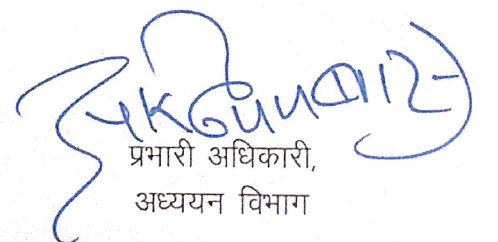 प्रभारी अधिकारी,
अध्ययन विभाग